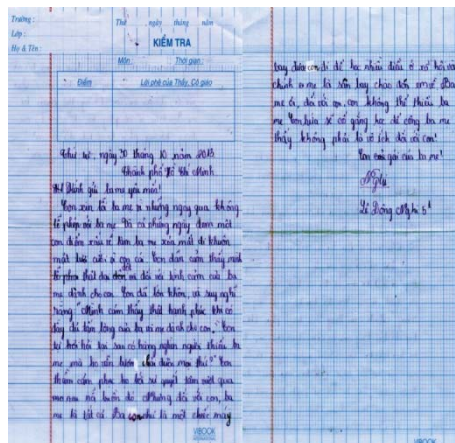 Trường :
Lớp :
Họ & Tên :
Thứ ngày tháng năm
KIỂM TRA
Môn : Thời gian :
Điểm
Lời phê của Thầy, Cô giáo
Thứ tư, ngày 30 tháng 10 năm 2013
Thành phố Hồ Chí Minh
Kính gửi ba mẹ yêu mến!
Con xin lỗi ba mẹ vì những ngày qua không
lễ phép với ba mẹ. Và có những ngày đem một
con điểm xấu về làm ba mẹ xóa mất đi khuôn
mặt tươi cười vì con cả. Con dần cảm thấy mình
thật dại đối với tình cảm của ba
mẹ dành cho con. Con đã lớn khôn, và suy nghĩ
rằng: "Mình cảm thấy thật hạnh phúc khi có
đầy đủ tấm lòng của ba mẹ dành cho con." Con
tự hỏi tại sao có hàng nghìn người thiếu ba
mẹ mà họ vẫn luôn Con
thầm cảm phục họ bởi sự quyết tâm một quá
nỗi buồn đó. Nhưng đối với con, ba
mẹ là tất cả. Ba mẹ như là một chiếc máy
bay đưa con đi để học nhiều điều ở xã hội và
chính mẹ là sân bay chào đón Ba
mẹ ơi, đối với con, con không thể thiếu ba
mẹ. Con hứa sẽ cố gắng học để công ba mẹ
thấy không phải là vô ích đối với con!
Con gái của ba mẹ!
Nghi
Lê Đông Nghi 5
VIBOOK
VIBOOK